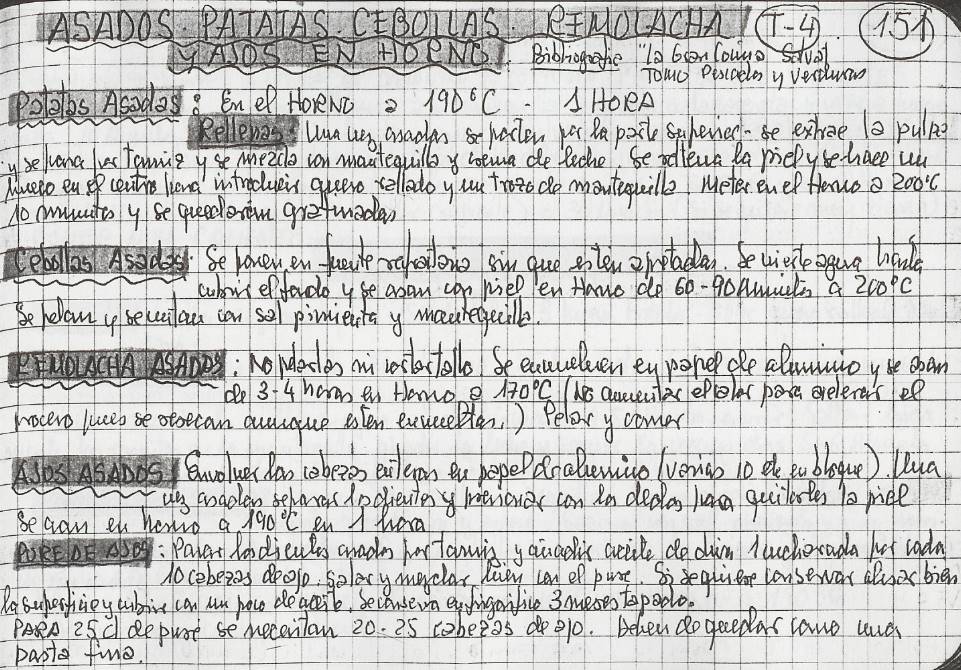 ASADOS. PATATAS. CEBOLLAS. REMOLACHA T-4 151
Y AJOS EN HORNO. Bibliografia "La Gran Cocina Salvat
Tomo Pescados y Verduras
Patatas Asadas: En el HORNO a 190°C - 1 HORA
Rellenas: Una vez asadas se parten por la parte superior - se extrae la pulpa
y se pasa por tamiz y se mezcla con mantequilla y crema de leche. Se rellena la piel y se hace un
hueco en el centro para introducir queso rallado y un trozo de mantequilla. Meter en el Horno a 200°C
10 minutos y se quedaran gratinadas
Cebollas Asadas: Se ponen en fuente refractaria sin que esten apretadas. Se vierte agua hasta
cubrir el fondo y se asan con piel en Horno de 60-90 minutos a 200°C
Se pelan y se untan con sal pimienta y mantequilla.
REMOLACHA ASADAS: No pelarlas ni cortar tallo. Se envuelven en papel de aluminio y se asan
de 3-4 horas en Horno a 170°C (No aumentar el calor para acelerar el
proceso pues se resecan aunque esten envueltas.) Pelar y comer
AJOS ASADOS: Envolver las cabezas enteras en papel de aluminio (varias 10 de en bloque). Una
vez asadas separar los dientes y presionar con los dedos para quitarles la piel
Se asan en horno a 190°C en 1 hora
PURE DE AJOS: Pasar los dientes asados por tamiz y añadir aceite de oliva 1 cucharada por cada
10 cabezas de ajo. Salar y mezclar bien con el pure. Si se quiere conservar alisar bien
la superficie y cubrir con un poco de aceite. Se conserva en frigorifico 3 meses tapado.
PARA 25 cl de puré se necesitan 20-25 cabezas de ajo. Deben de quedar como una
pasta fina.